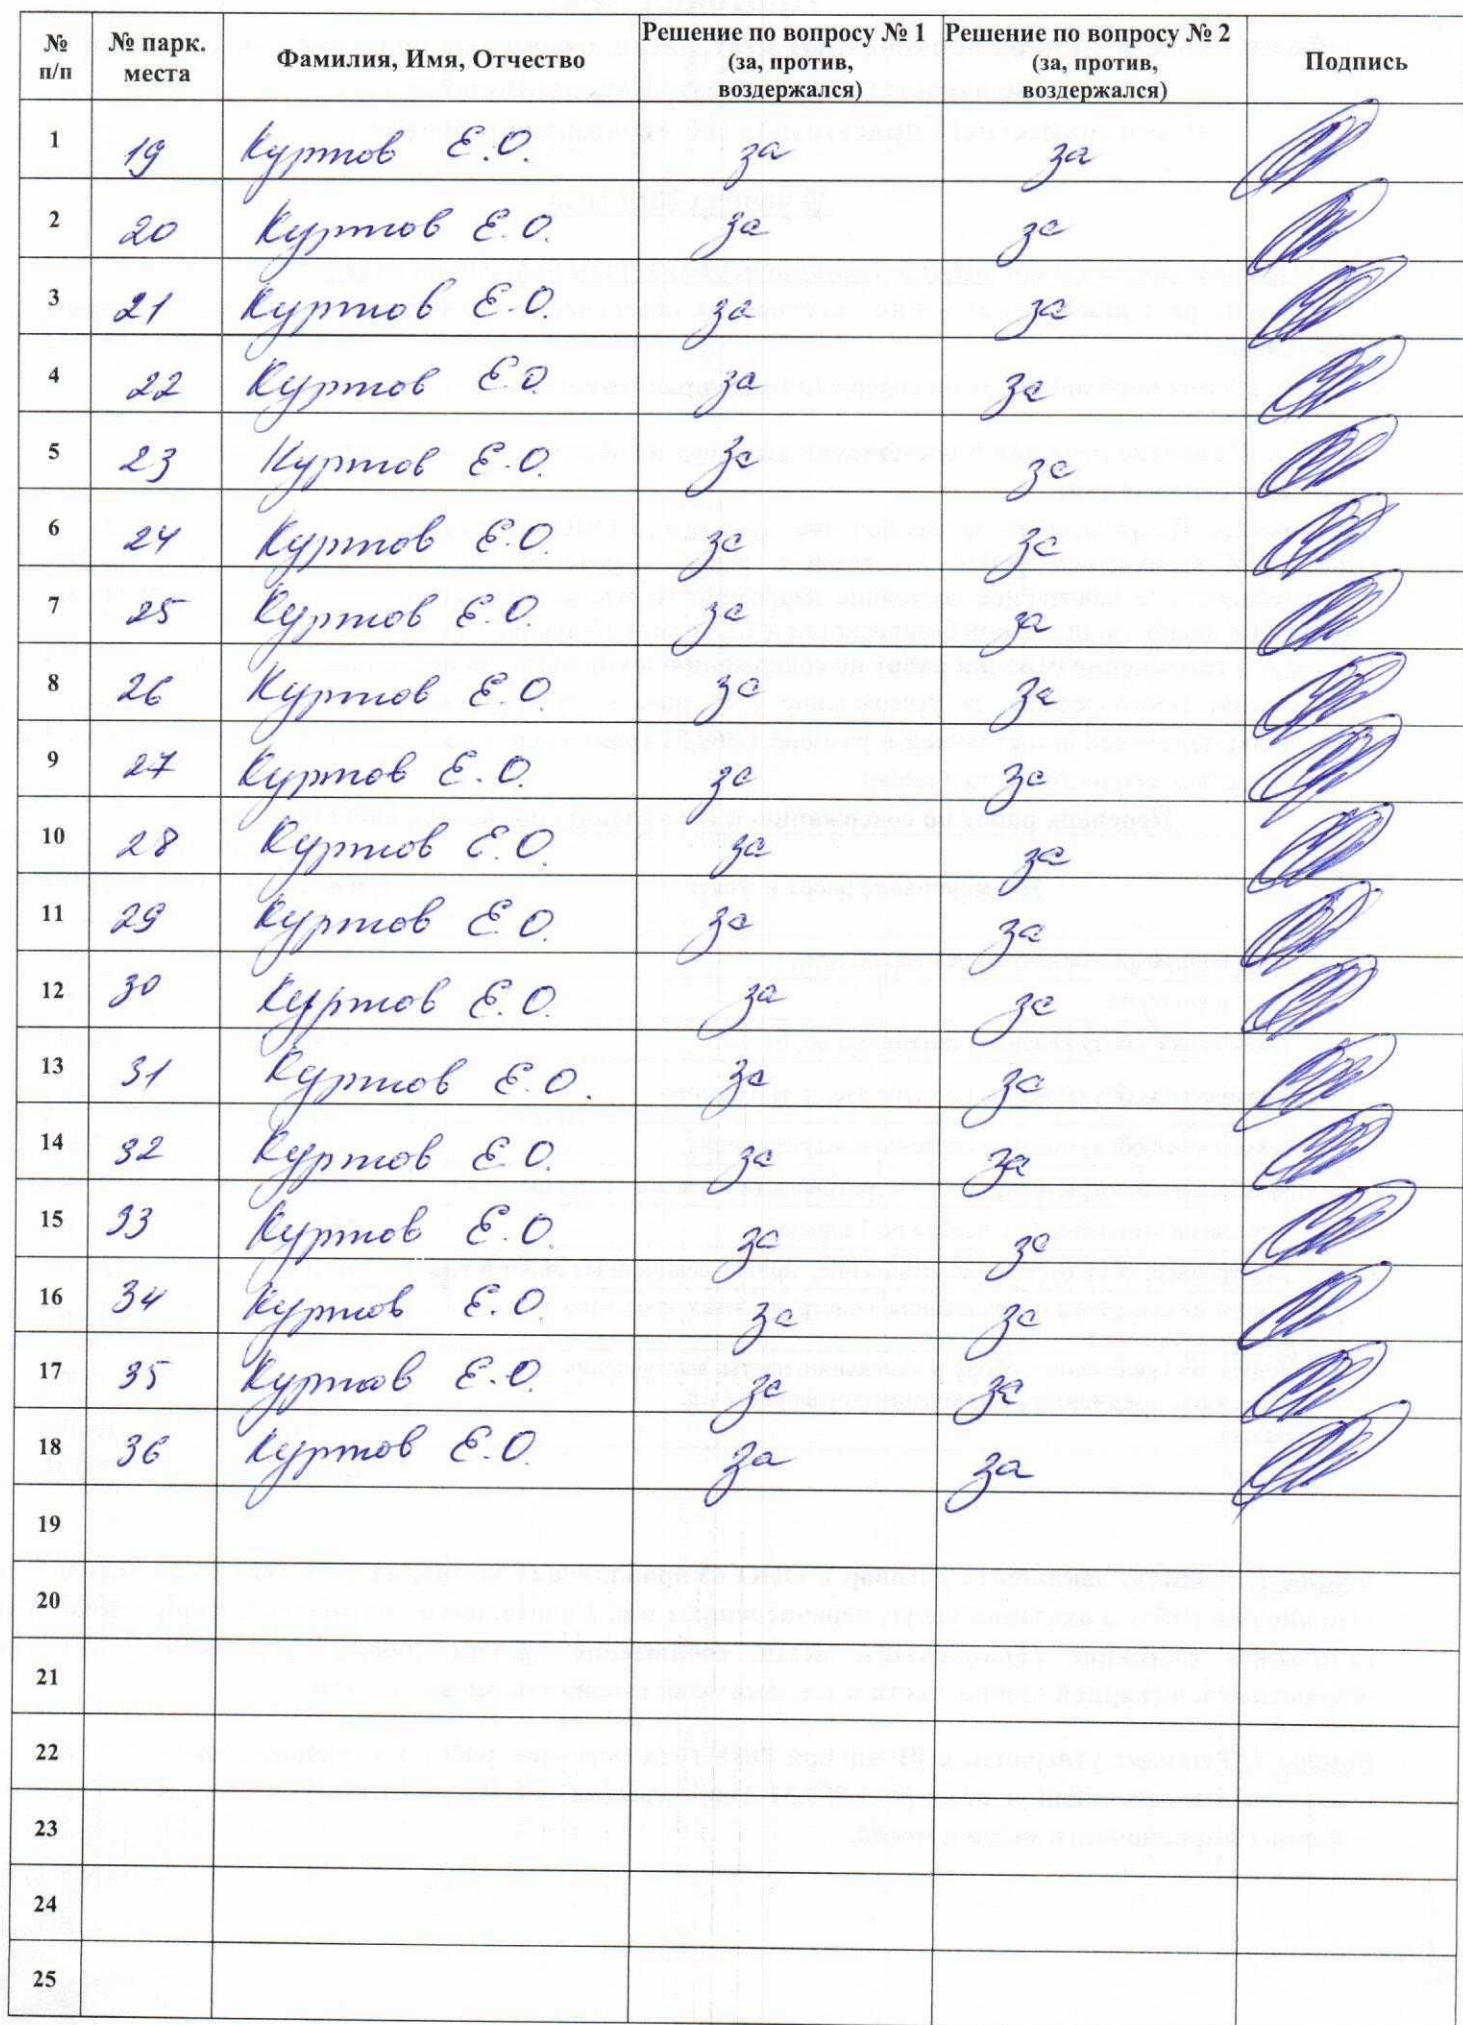 № п/п № парк. места Фамилия, Имя, Отчество Решение по вопросу № 1 (за, против, воздержался) Решение по вопросу № 2 (за, против, воздержался) Подпись
1 19 Куртов Е.О. за за
2 20 Куртов Е.О. за за
3 21 Куртов Е.О за за
4 22 Куртов ЕО за за
5 23 Куртов Е.О. за за
6 24 Куртов Е.О. за за
7 25 Куртов Е.О. за за
8 26 Куртов Е.О за за
9 27 Куртов Е.О. за за
10 28 Куртов Е.О. за за
11 29 Куртов Е.О. за за
12 30 Куртов Е.О. за за
13 31 Куртов Е.О. за за
14 32 Куртов Е.О. за за
15 33 Куртов Е.О. за за
16 34 Куртов Е.О. за за
17 35 Куртов Е.О. за за
18 36 Куртов Е.О. за за
19
20
21
22
23
24
25